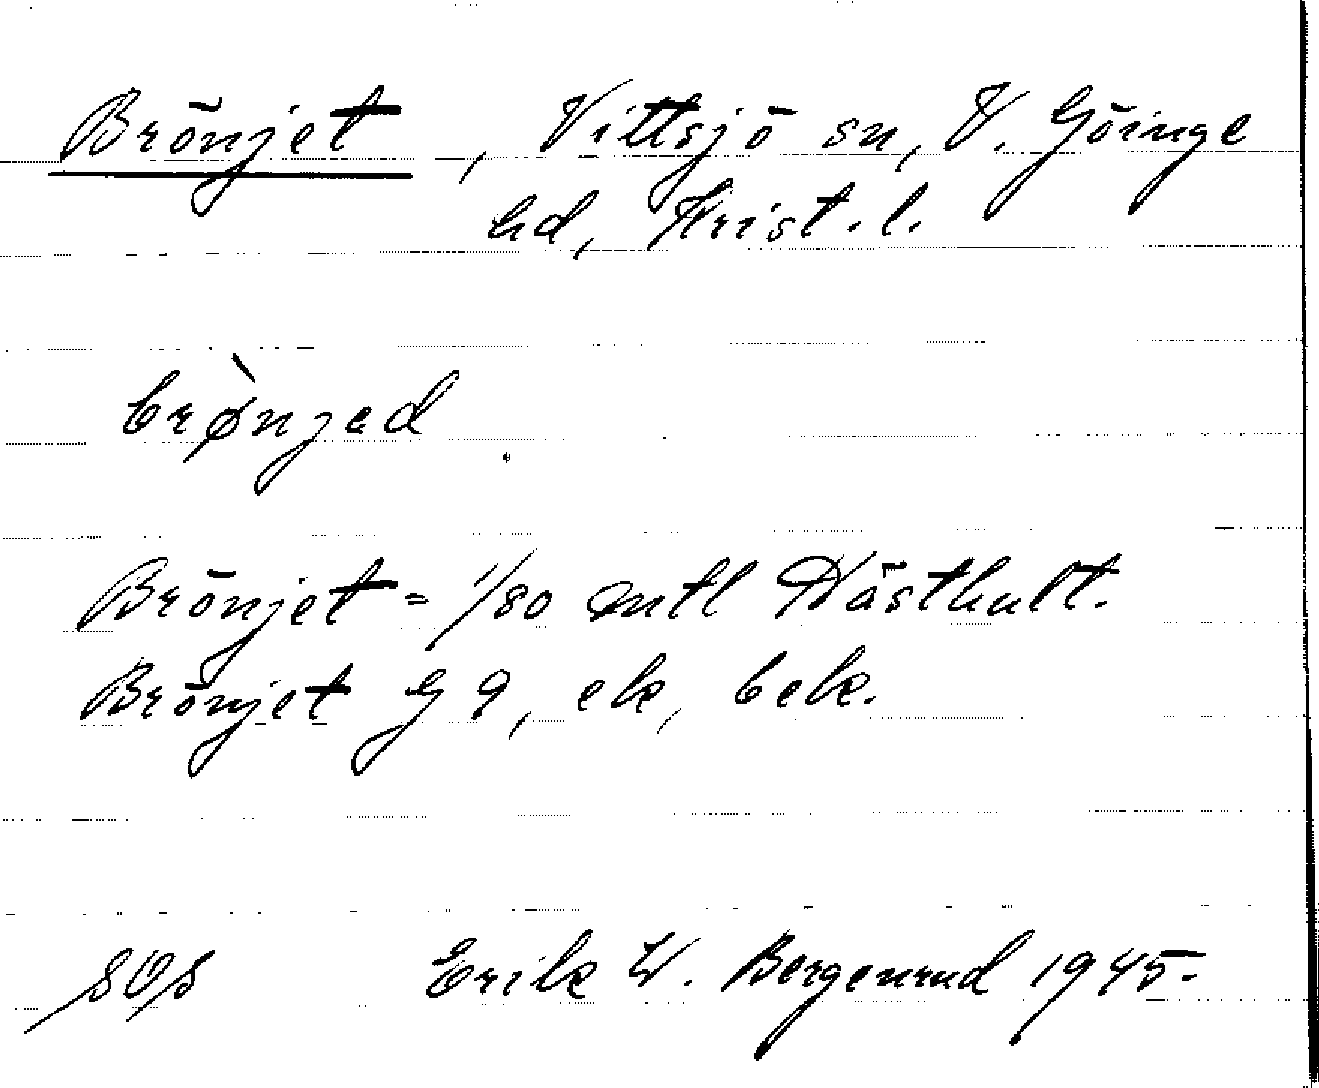 Brönjet, Vittsjö sn, V. Göinge
hd, Krist. l.
brø̀njed
Brönjet = 1/80 mtl Hästhult.
Brönjet G 9, ek, bek.
SOS Erik W. Bergenrud 1945.